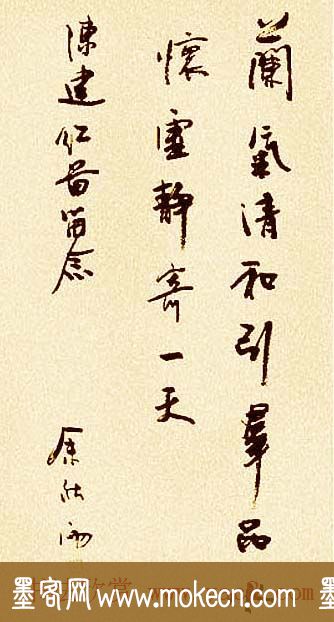 蘭氣清和引羣品
懷虛靜寄一天
陳建紅留念
余秋雨
墨客网_www.mokecn.com